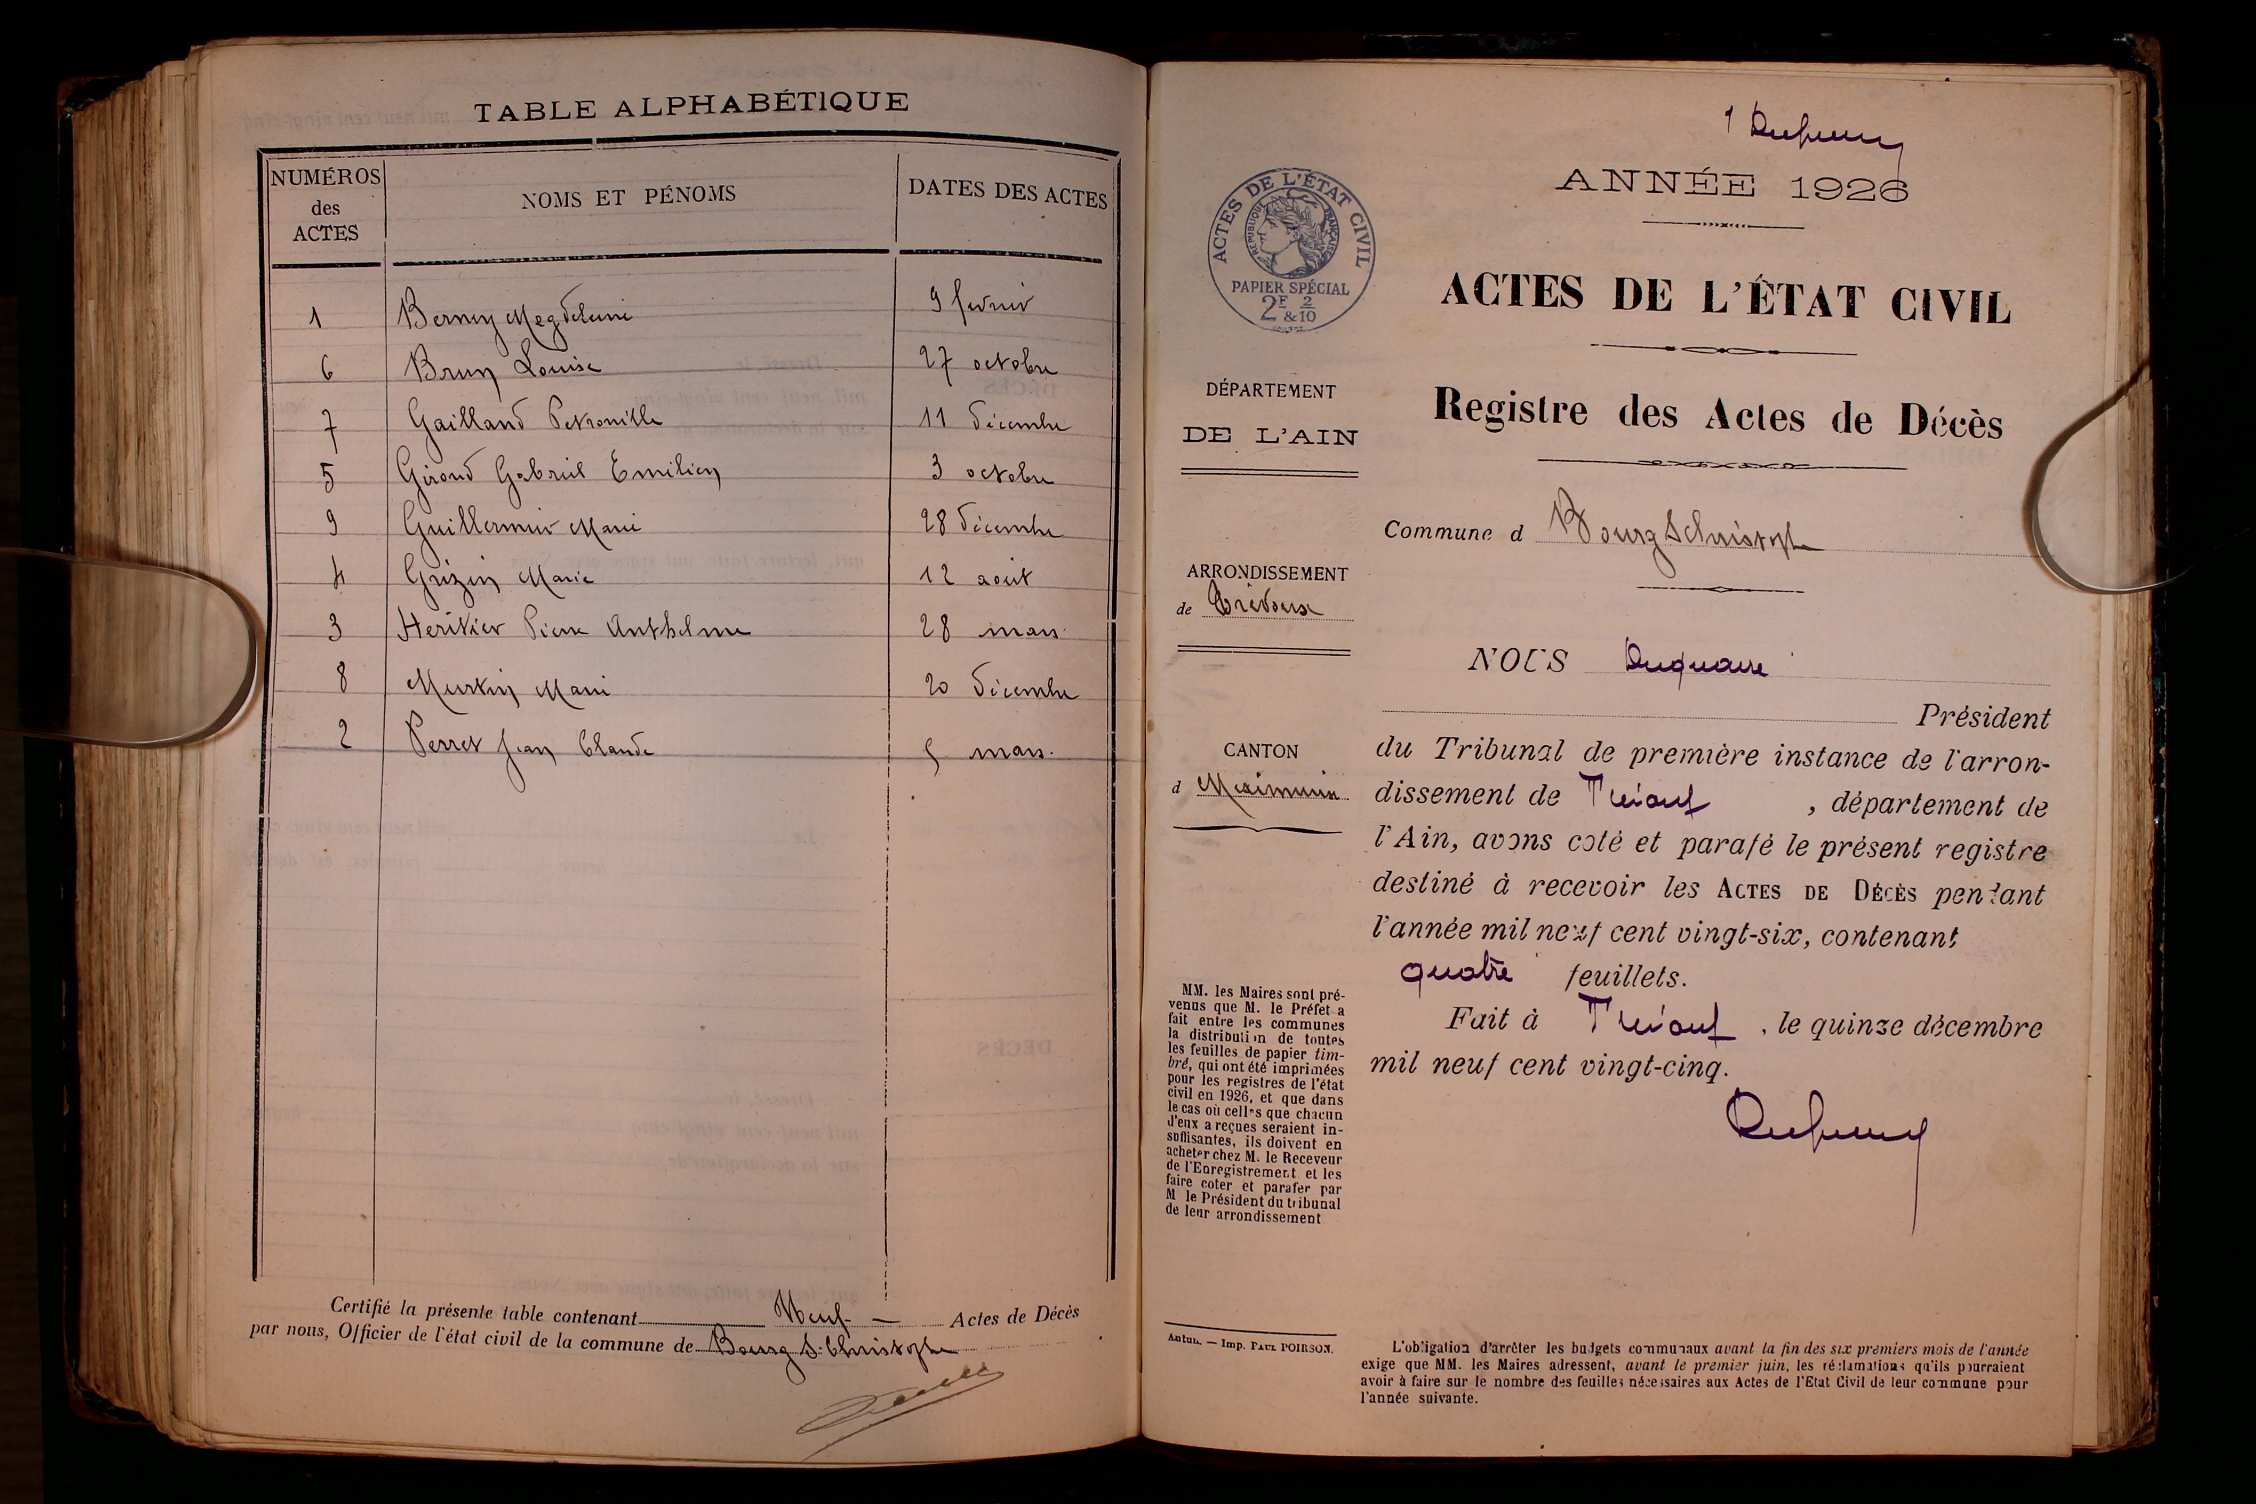 TABLE ALPHABÉTIQUE
NUMÉROS des ACTES
NOMS ET PÉNOMS
DATES DES ACTES
1 Berney Magdeleine 9 fevrier
6 Brun Louise 27 octobre
7 Gailland Petronille 11 décembre
5 Giroud Gabriel Emilien 3 octobre
9 Guillermin Marie 28 décembre
4 Grizin Marie 12 aout
3 Heritier Pierre Anthelme 28 mars
8 Murtin Marie 20 décembre
2 Perret Jean Claude 5 mars
Certifié la présente table contenant Neuf — Actes de Décès
par nous, Officier de l'état civil de la commune de Bourg St Christophe
1
ANNÉE 1926
ACTES DE L'ÉTAT CIVIL
RÉPUBLIQUE FRANÇAISE
PAPIER SPÉCIAL
2F 2
& 10
ACTES DE L'ÉTAT CIVIL
DÉPARTEMENT
DE L'AIN
Registre des Actes de Décès
Commune d Bourg St Christophe
ARRONDISSEMENT
de Trévoux
CANTON
d Meximieux
MM. les Maires sont pré-
venus que M. le Préfet a
fait entre les communes
la distribution de toutes
les feuilles de papier tim-
bré, qui ont été imprimées
pour les registres de l'état
civil en 1926, et que dans
le cas où celles que chacun
d'eux a reçues seraient in-
suffisantes, ils doivent en
acheter chez M. le Receveur
de l'Enregistrement et les
faire coter et parafer par
M le Président du tribunal
de leur arrondissement
Autun. — Imp. PAUL POIRSON.
NOUS Duquaire
Président
du Tribunal de première instance de l'arron-
dissement de Trévoux, département de
l'Ain, avons coté et parafé le présent registre
destiné à recevoir les ACTES DE DÉCÈS pendant
l'année mil neuf cent vingt-six, contenant
quatre feuillets.
Fait à Trévoux, le quinze décembre
mil neuf cent vingt-cinq.
L'obligation d'arrêter les budgets communaux avant la fin des six premiers mois de l'année
exige que MM. les Maires adressent, avant le premier juin, les réclamations qu'ils pourraient
avoir à faire sur le nombre des feuilles nécessaires aux Actes de l'Etat Civil de leur commune pour
l'année suivante.